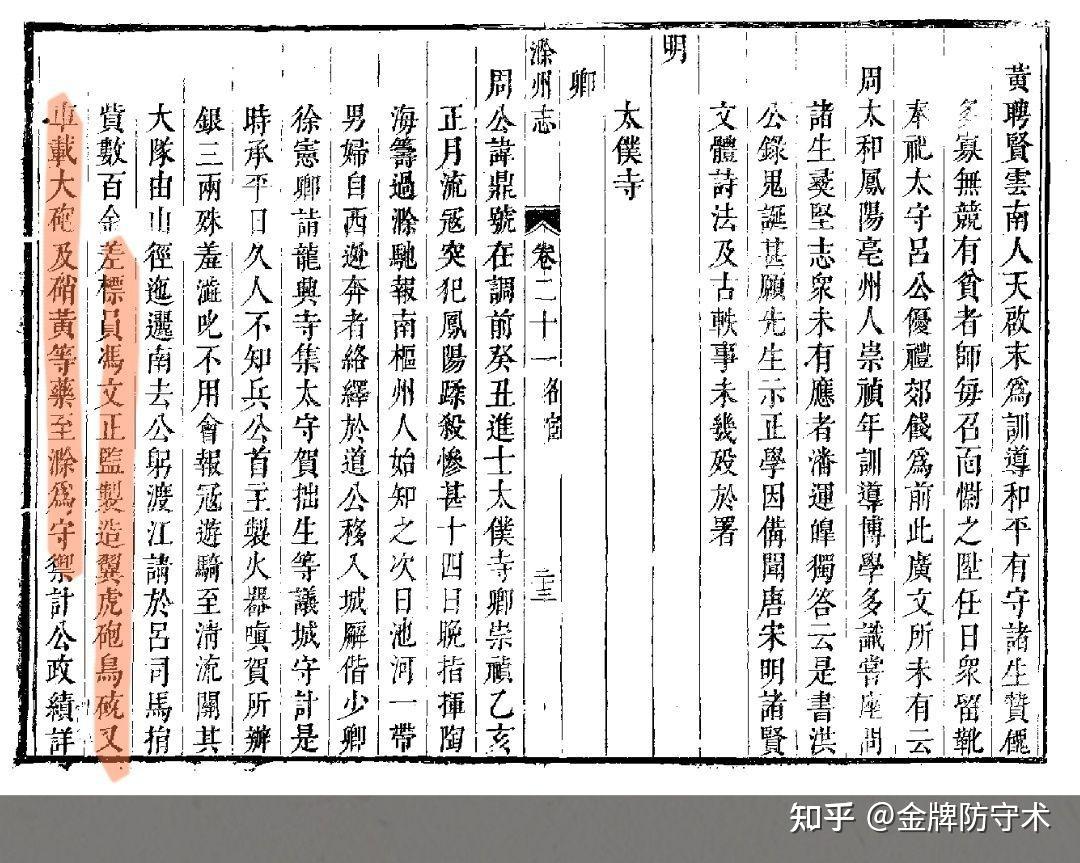 黃聘賢雲南人天啟末爲訓導和平有守諸生贊儷
多寡無競有貧者師每召而惻之陞任日衆留靴
奉祀太守呂公優禮郊餞爲前此廣文所未有云
周太和鳳陽亳州人崇禎年訓導博學多識嘗座問
諸生裦堅志衆未有應者潘運皥獨答云是書洪
公錄鬼誕甚願先生示正學因備聞唐宋明諸賢
文體詩法及古軼事未幾歿於署
明
太僕寺
卿
滁州志 卷二十一 名宦 二三
周公諱鼎號在調前癸丑進士太僕寺卿崇禎乙亥
正月流寇突犯鳳陽蹂殺慘甚十四日晚指揮陶
海籌過滁馳報南樞州人始知之次日池河一帶
男婦自西遊奔者絡繹於道公移入城廨偕少卿
徐憲卿請龍興寺集太守賀拙生等議城守計是
時承平日久人不知兵公首主製火器嗔賀所辦
銀三兩殊羞澁叱不用會報寇遊騎至淸流關其
大隊由山徑迤邐南去公躬渡江請於呂司馬捐
貲數百金差標員馮文正監製造翼虎砲鳥硫又
車載大砲及硝黃等藥至滁爲守禦計公政績詳
知乎 @金牌防守术